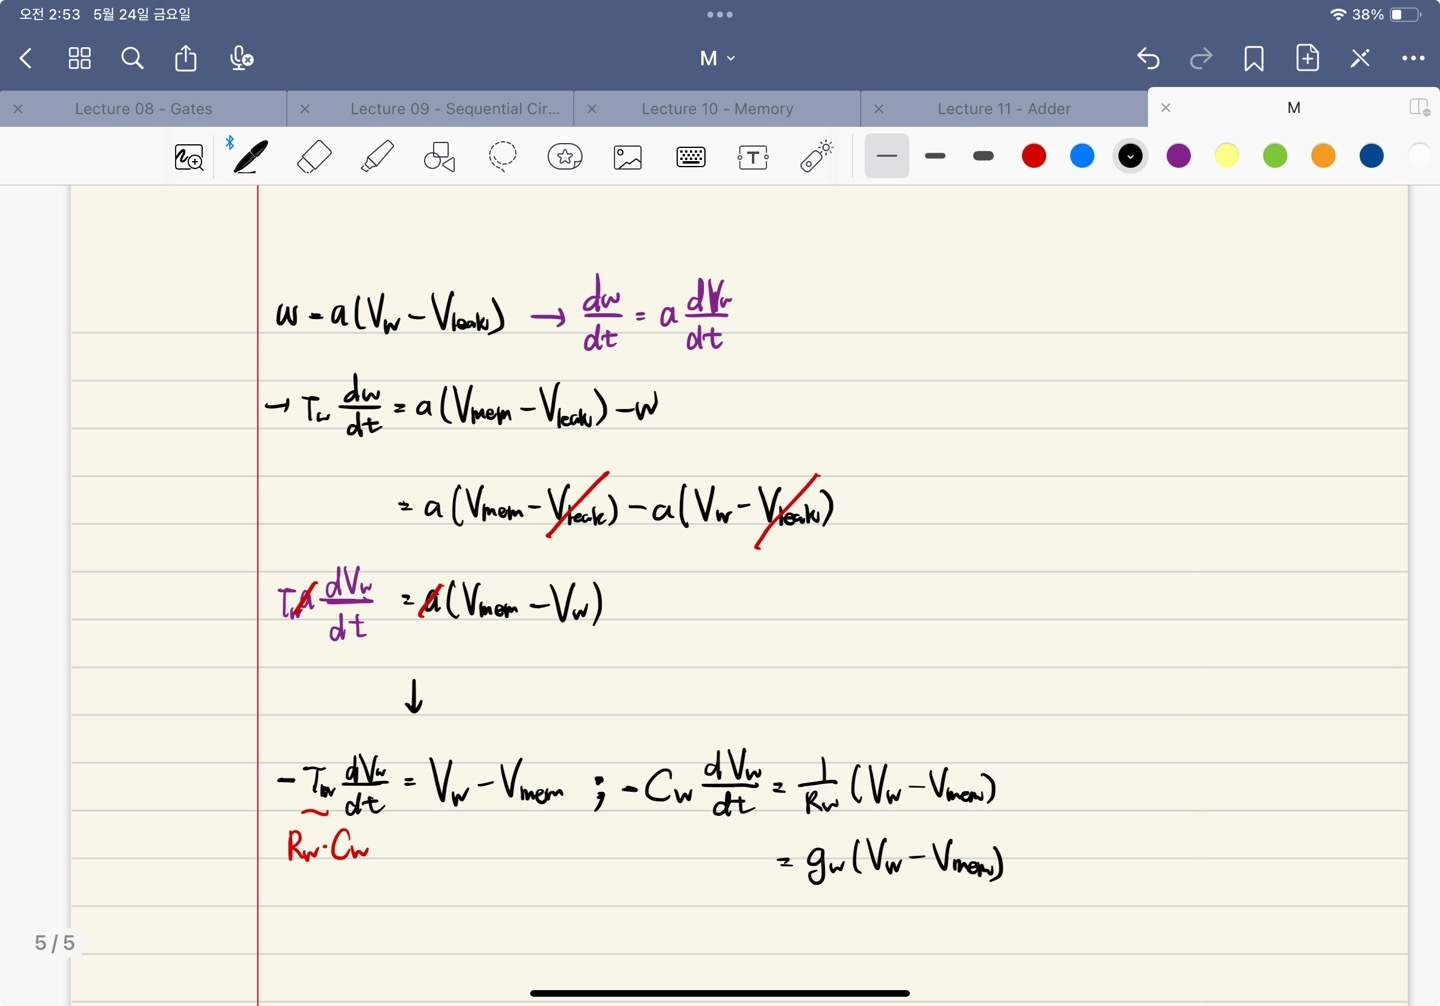 오전 2:53 5월 24일 금요일
38%
M
Lecture 08 - Gates
Lecture 09 - Sequential Cir...
Lecture 10 - Memory
Lecture 11 - Adder
M
w = a(V_w - V_leak) → dw/dt = a dV_w/dt
→ τ_w dw/dt = a(V_mem - V_leak) - w
= a(V_mem - V_leak) - a(V_w - V_leak)
τ_w a dV_w/dt = a(V_mem - V_w)
↓
- τ_w dV_w/dt = V_w - V_mem ; - C_w dV_w/dt = 1/R_w (V_w - V_mem)
R_w · C_w
= g_w (V_w - V_mem)
5 / 5